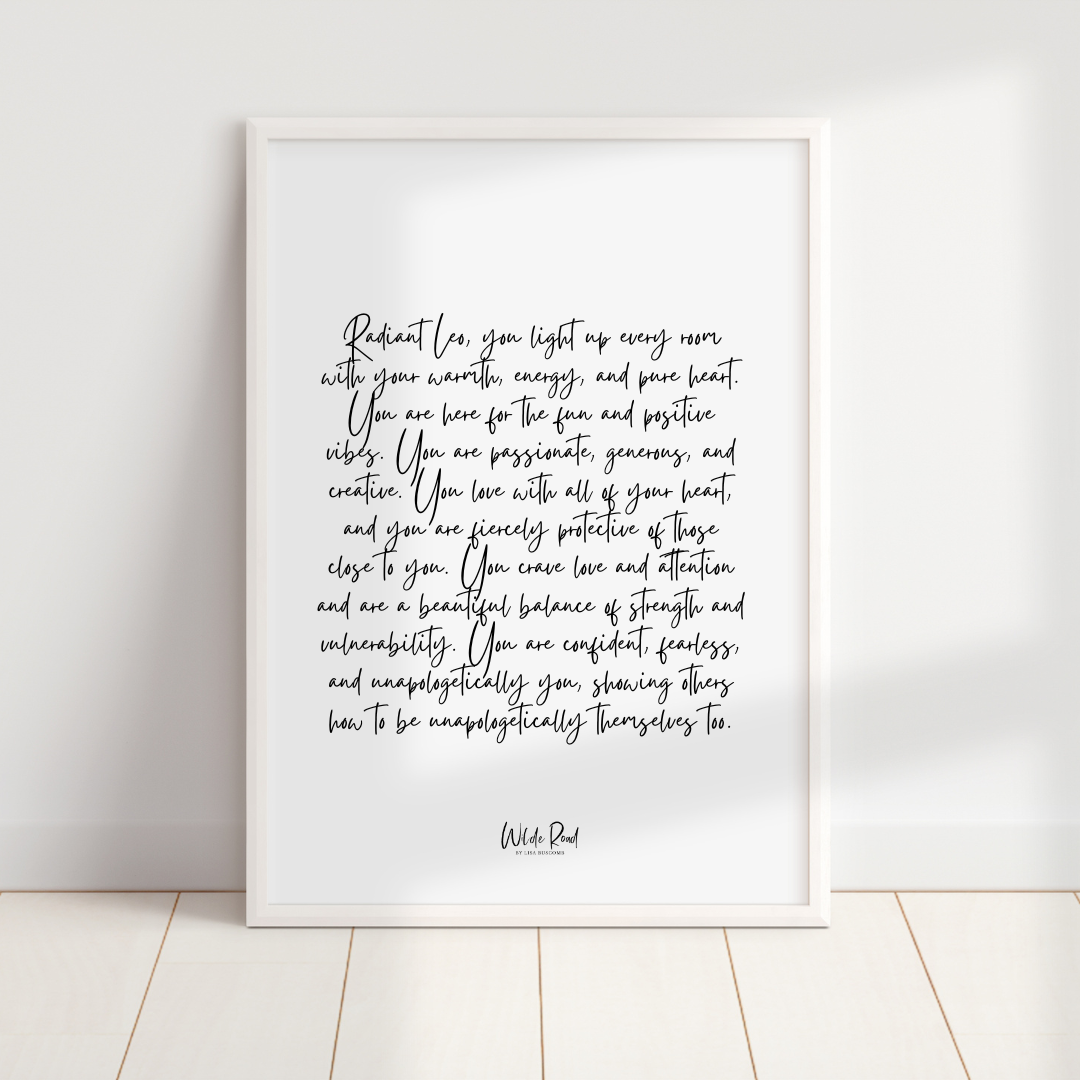 Radiant Leo, you light up every room
with your warmth, energy, and pure heart.
You are here for the fun and positive
vibes. You are passionate, generous, and
creative. You love with all of your heart,
and you are fiercely protective of those
close to you. You crave love and attention
and are a beautiful balance of strength and
vulnerability. You are confident, fearless,
and unapologetically you, showing others
how to be unapologetically themselves too.
Wilde Road
BY LISA BUSCOMB